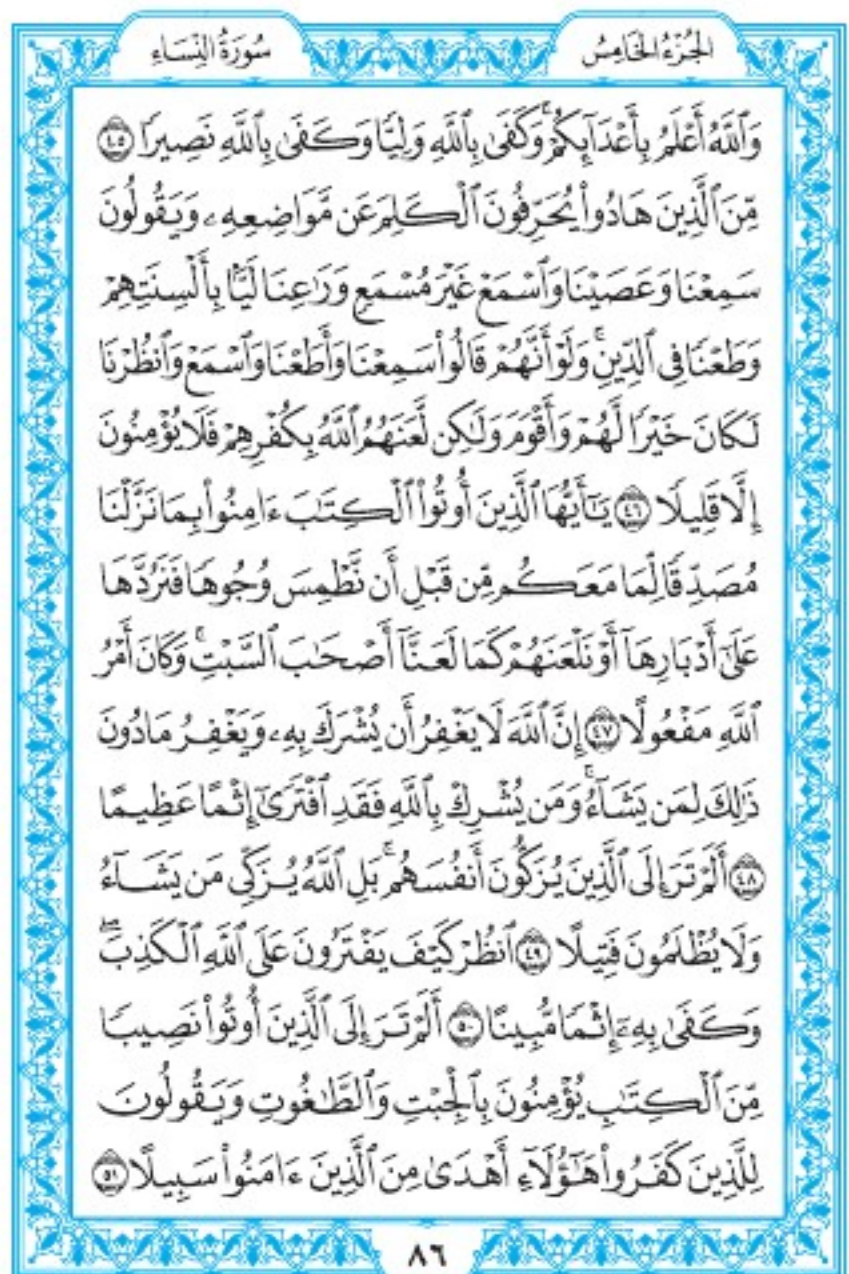 الجُزْءُ الخَامِسُ سُورَةُ النِّسَاءِ
وَٱللَّهُ أَعْلَمُ بِأَعْدَآئِكُمْۚ وَكَفَىٰ بِٱللَّهِ وَلِيّٗا وَكَفَىٰ بِٱللَّهِ نَصِيرٗا ٤٥
مِّنَ ٱلَّذِينَ هَادُواْ يُحَرِّفُونَ ٱلۡكَلِمَ عَن مَّوَاضِعِهِۦ وَيَقُولُونَ
سَمِعۡنَا وَعَصَيۡنَا وَٱسۡمَعۡ غَيۡرَ مُسۡمَعٖ وَرَٰعِنَا لَيَّۢا بِأَلۡسِنَتِهِمۡ
وَطَعۡنٗا فِي ٱلدِّينِۚ وَلَوۡ أَنَّهُمۡ قَالُواْ سَمِعۡنَا وَأَطَعۡنَا وَٱسۡمَعۡ وَٱنظُرۡنَا
لَكَانَ خَيۡرٗا لَّهُمۡ وَأَقۡوَمَ وَلَٰكِن لَّعَنَهُمُ ٱللَّهُ بِكُفۡرِهِمۡ فَلَا يُؤۡمِنُونَ
إِلَّا قَلِيلٗا ٤٦ يَٰٓأَيُّهَا ٱلَّذِينَ أُوتُواْ ٱلۡكِتَٰبَ ءَامِنُواْ بِمَا نَزَّلۡنَا
مُصَدِّقٗا لِّمَا مَعَكُم مِّن قَبۡلِ أَن نَّطۡمِسَ وُجُوهٗا فَنَرُدَّهَا
عَلَىٰٓ أَدۡبَارِهَآ أَوۡ نَلۡعَنَهُمۡ كَمَا لَعَنَّآ أَصۡحَٰبَ ٱلسَّبۡتِۚ وَكَانَ أَمۡرُ
ٱللَّهِ مَفۡعُولًا ٤٧ إِنَّ ٱللَّهَ لَا يَغۡفِرُ أَن يُشۡرَكَ بِهِۦ وَيَغۡفِرُ مَا دُونَ
ذَٰلِكَ لِمَن يَشَآءُۚ وَمَن يُشۡرِكۡ بِٱللَّهِ فَقَدِ ٱفۡتَرَىٰٓ إِثۡمًا عَظِيمًا
٤٨ أَلَمۡ تَرَ إِلَى ٱلَّذِينَ يُزَكُّونَ أَنفُسَهُمۚ بَلِ ٱللَّهُ يُزَكِّي مَن يَشَآءُ
وَلَا يُظۡلَمُونَ فَتِيلًا ٤٩ ٱنظُرۡ كَيۡفَ يَفۡتَرُونَ عَلَى ٱللَّهِ ٱلۡكَذِبَۖ
وَكَفَىٰ بِهِۦٓ إِثۡمٗا مُّبِينًا ٥٠ أَلَمۡ تَرَ إِلَى ٱلَّذِينَ أُوتُواْ نَصِيبٗا
مِّنَ ٱلۡكِتَٰبِ يُؤۡمِنُونَ بِٱلۡجِبۡتِ وَٱلطَّٰغُوتِ وَيَقُولُونَ
لِلَّذِينَ كَفَرُواْ هَٰٓؤُلَآءِ أَهۡدَىٰ مِنَ ٱلَّذِينَ ءَامَنُواْ سَبِيلًا ٥١
٨٦